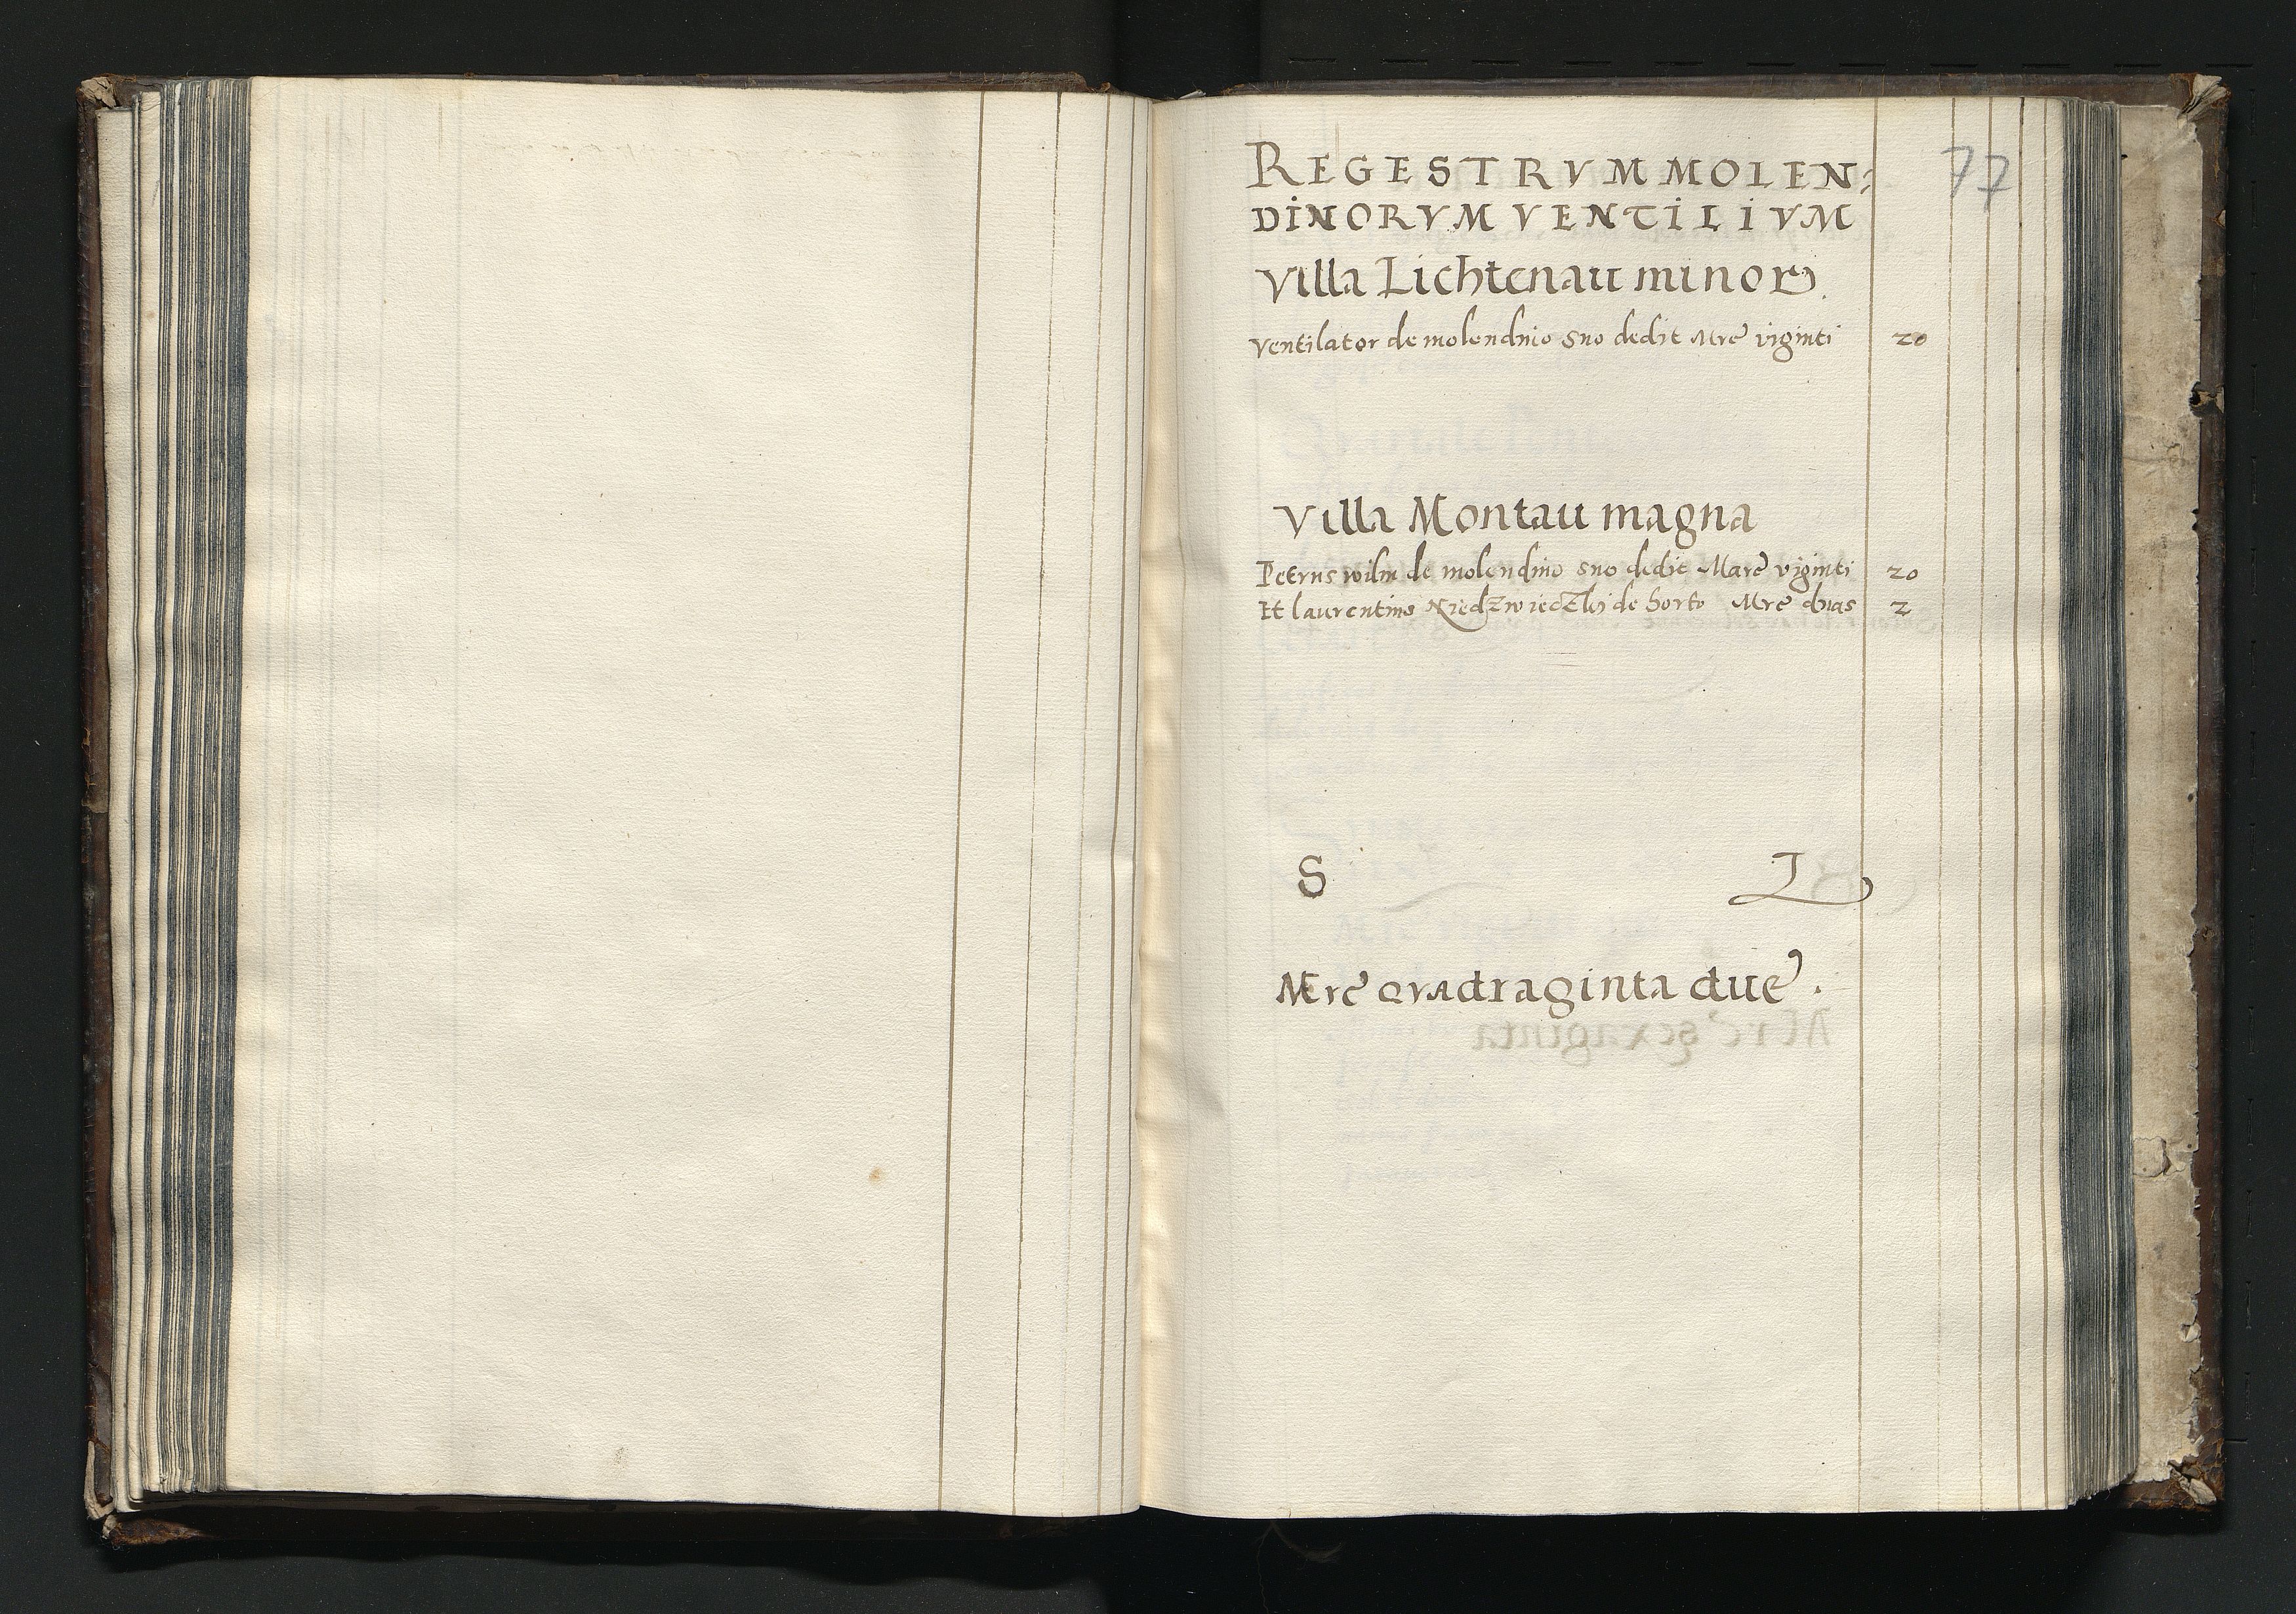 77
REGESTRVM MOLEN:
DINORVM VENTILIVM
Villa Lichtenau minori.
Ventilator de molendino suo dedit Mrc viginti 20
Villa Montau magna
Petrus wilm de molendino suo dedit Marc viginti 20
Et laurentius Niedzwieczki de horto Mrc duas 2
S L
Mrc qvadraginta due.
Mrc sexaginta